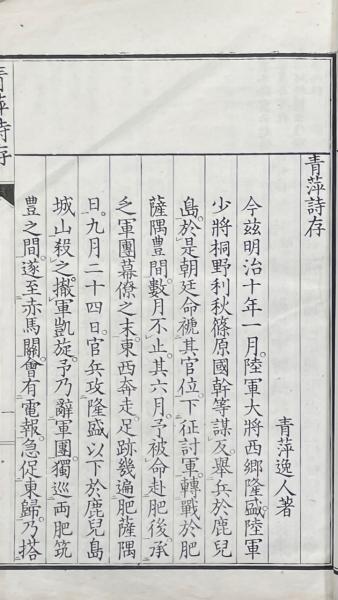 青萍詩存
青萍逸人著
今茲明治十年一月。陸軍大將西鄉隆盛。陸軍
少將桐野利秋篠原國幹等謀反。舉兵於鹿兒
島。於是朝廷命褫其官位。下征討軍。轉戰於肥
薩隅豊間。數月不止。其六月予被命赴肥後。承
乏軍團幕僚之末。東西奔走足跡幾遍肥薩隅
日。九月二十四日。官兵攻隆盛以下於鹿兒島
城山殺之。撤軍凱旋。予乃辭軍團。獨巡両肥筑
豊之間。遂至赤馬關。會有電報。急促東歸。乃搭
青萍詩存
一